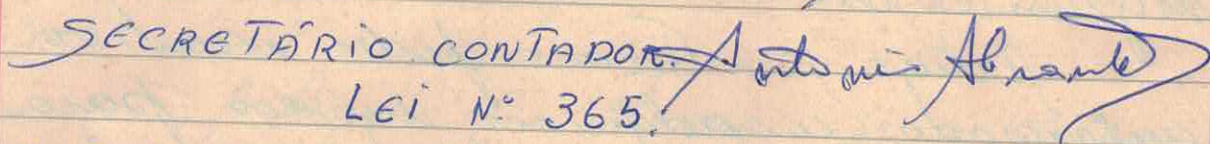 SECRETÁRIO CONTADOR. Antonio Abrantes
LEI Nº 365.